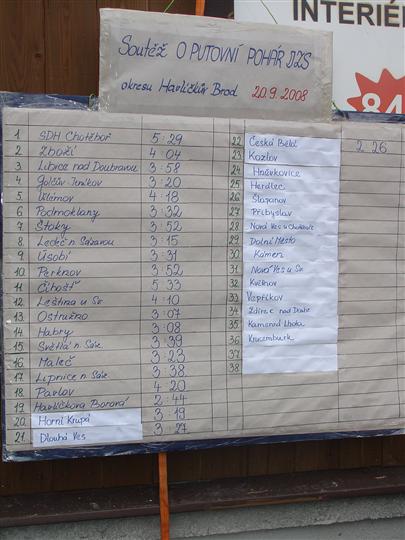 INTERIÉ
84
Soutěž O PUTOVNÍ POHÁR JZS
okresu Havlíčkův Brod 20.9.2008
1 SDH Chotěboř 5:29
2 Zboží 4:04
3 Libice nad Doubravou 3:58
4 Golčův Jeníkov 3:20
5 Vilémov 4:18
6 Podmoklany 3:32
7 Štoky 3:52
8 Ledeč n. Sázavou 3:15
9 Úsobí 3:31
10 Perknov 3:52
11 Číhošť 5:33
12 Leština u Sv. 4:10
13 Ostružno 3:07
14 Habry 3:08
15 Světlá n. Sáz. 3:39
16 Maleč 3:23
17 Lipnice n. Sáz. 3:38
18 Pavlov 4:20
19 Havlíčkova Borová 2:44
20. Horní Krupá 3:19
21. Dlouhá Ves 3:27
22 Česká Bělá 2:26
23 Kozlov
24 Hněvkovice
25 Herálec
26 Šlapanov
27 Přibyslav
28 Nová Ves u Chotěboře
29 Dolní Město
30 Kámen
31 Nová Ves u Sv.
32 Květnov
33 Vepříkov
34 Ždírec nad Doubr.
35 Kamenná Lhota
36 Krucemburk
37
38